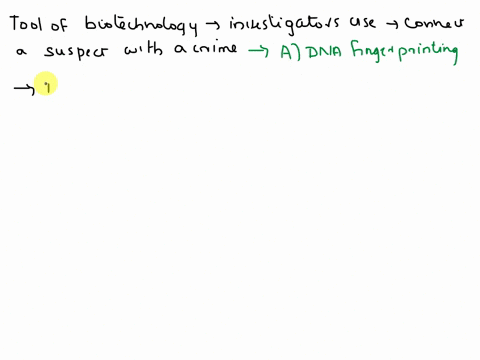 Tool of biotechnology → investigators use → connect
a suspect with a crime → A) DNA fingerprinting
→